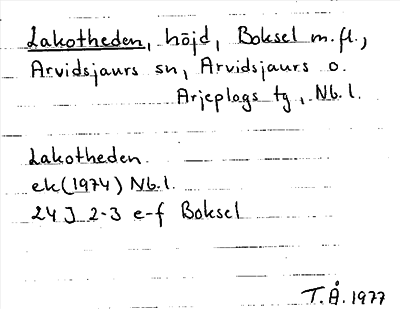 Lakotheden, höjd, Boksel m.fl.,
Arvidsjaurs sn, Arvidsjaurs o.
Arjeplogs tg, Nb. l.
Lakotheden.
ek (1974) Nb. l.
24 J 2-3 e-f Boksel
T.Å. 1977